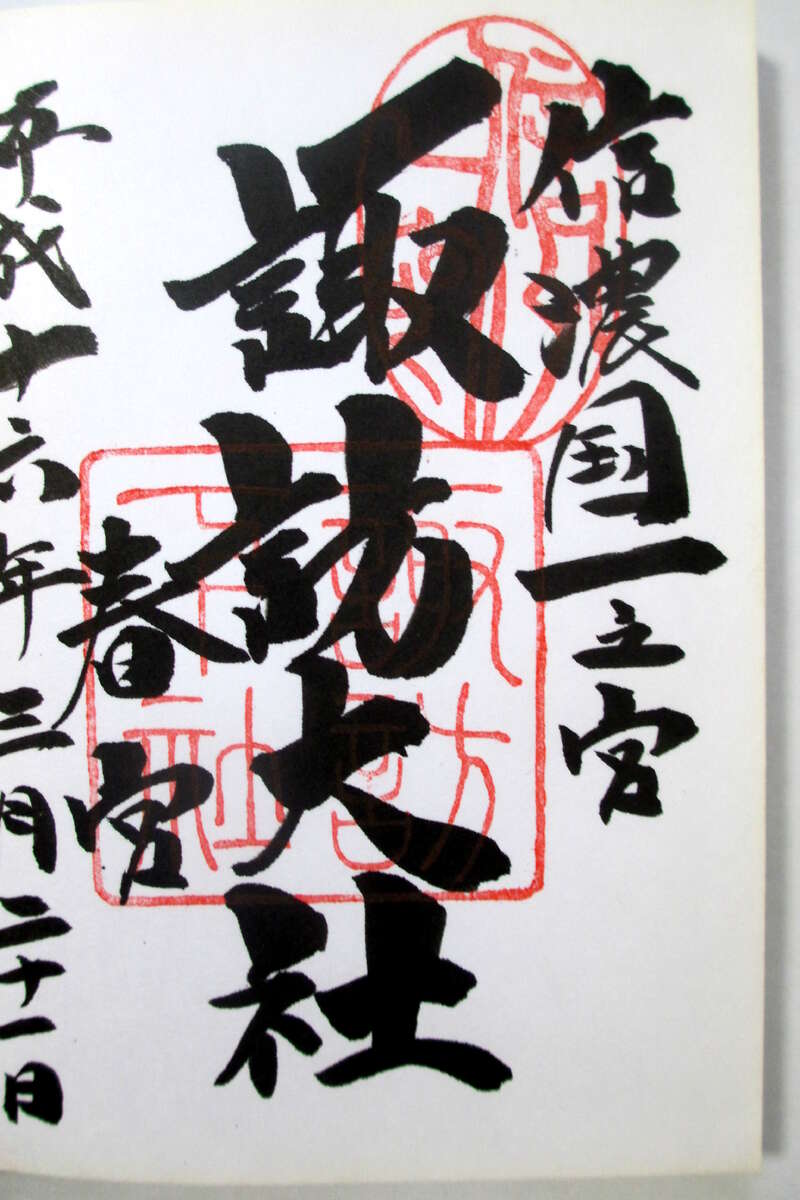 信濃国一之宮
諏訪大社
春宮
平成十六年三月二十一日
諏訪大社